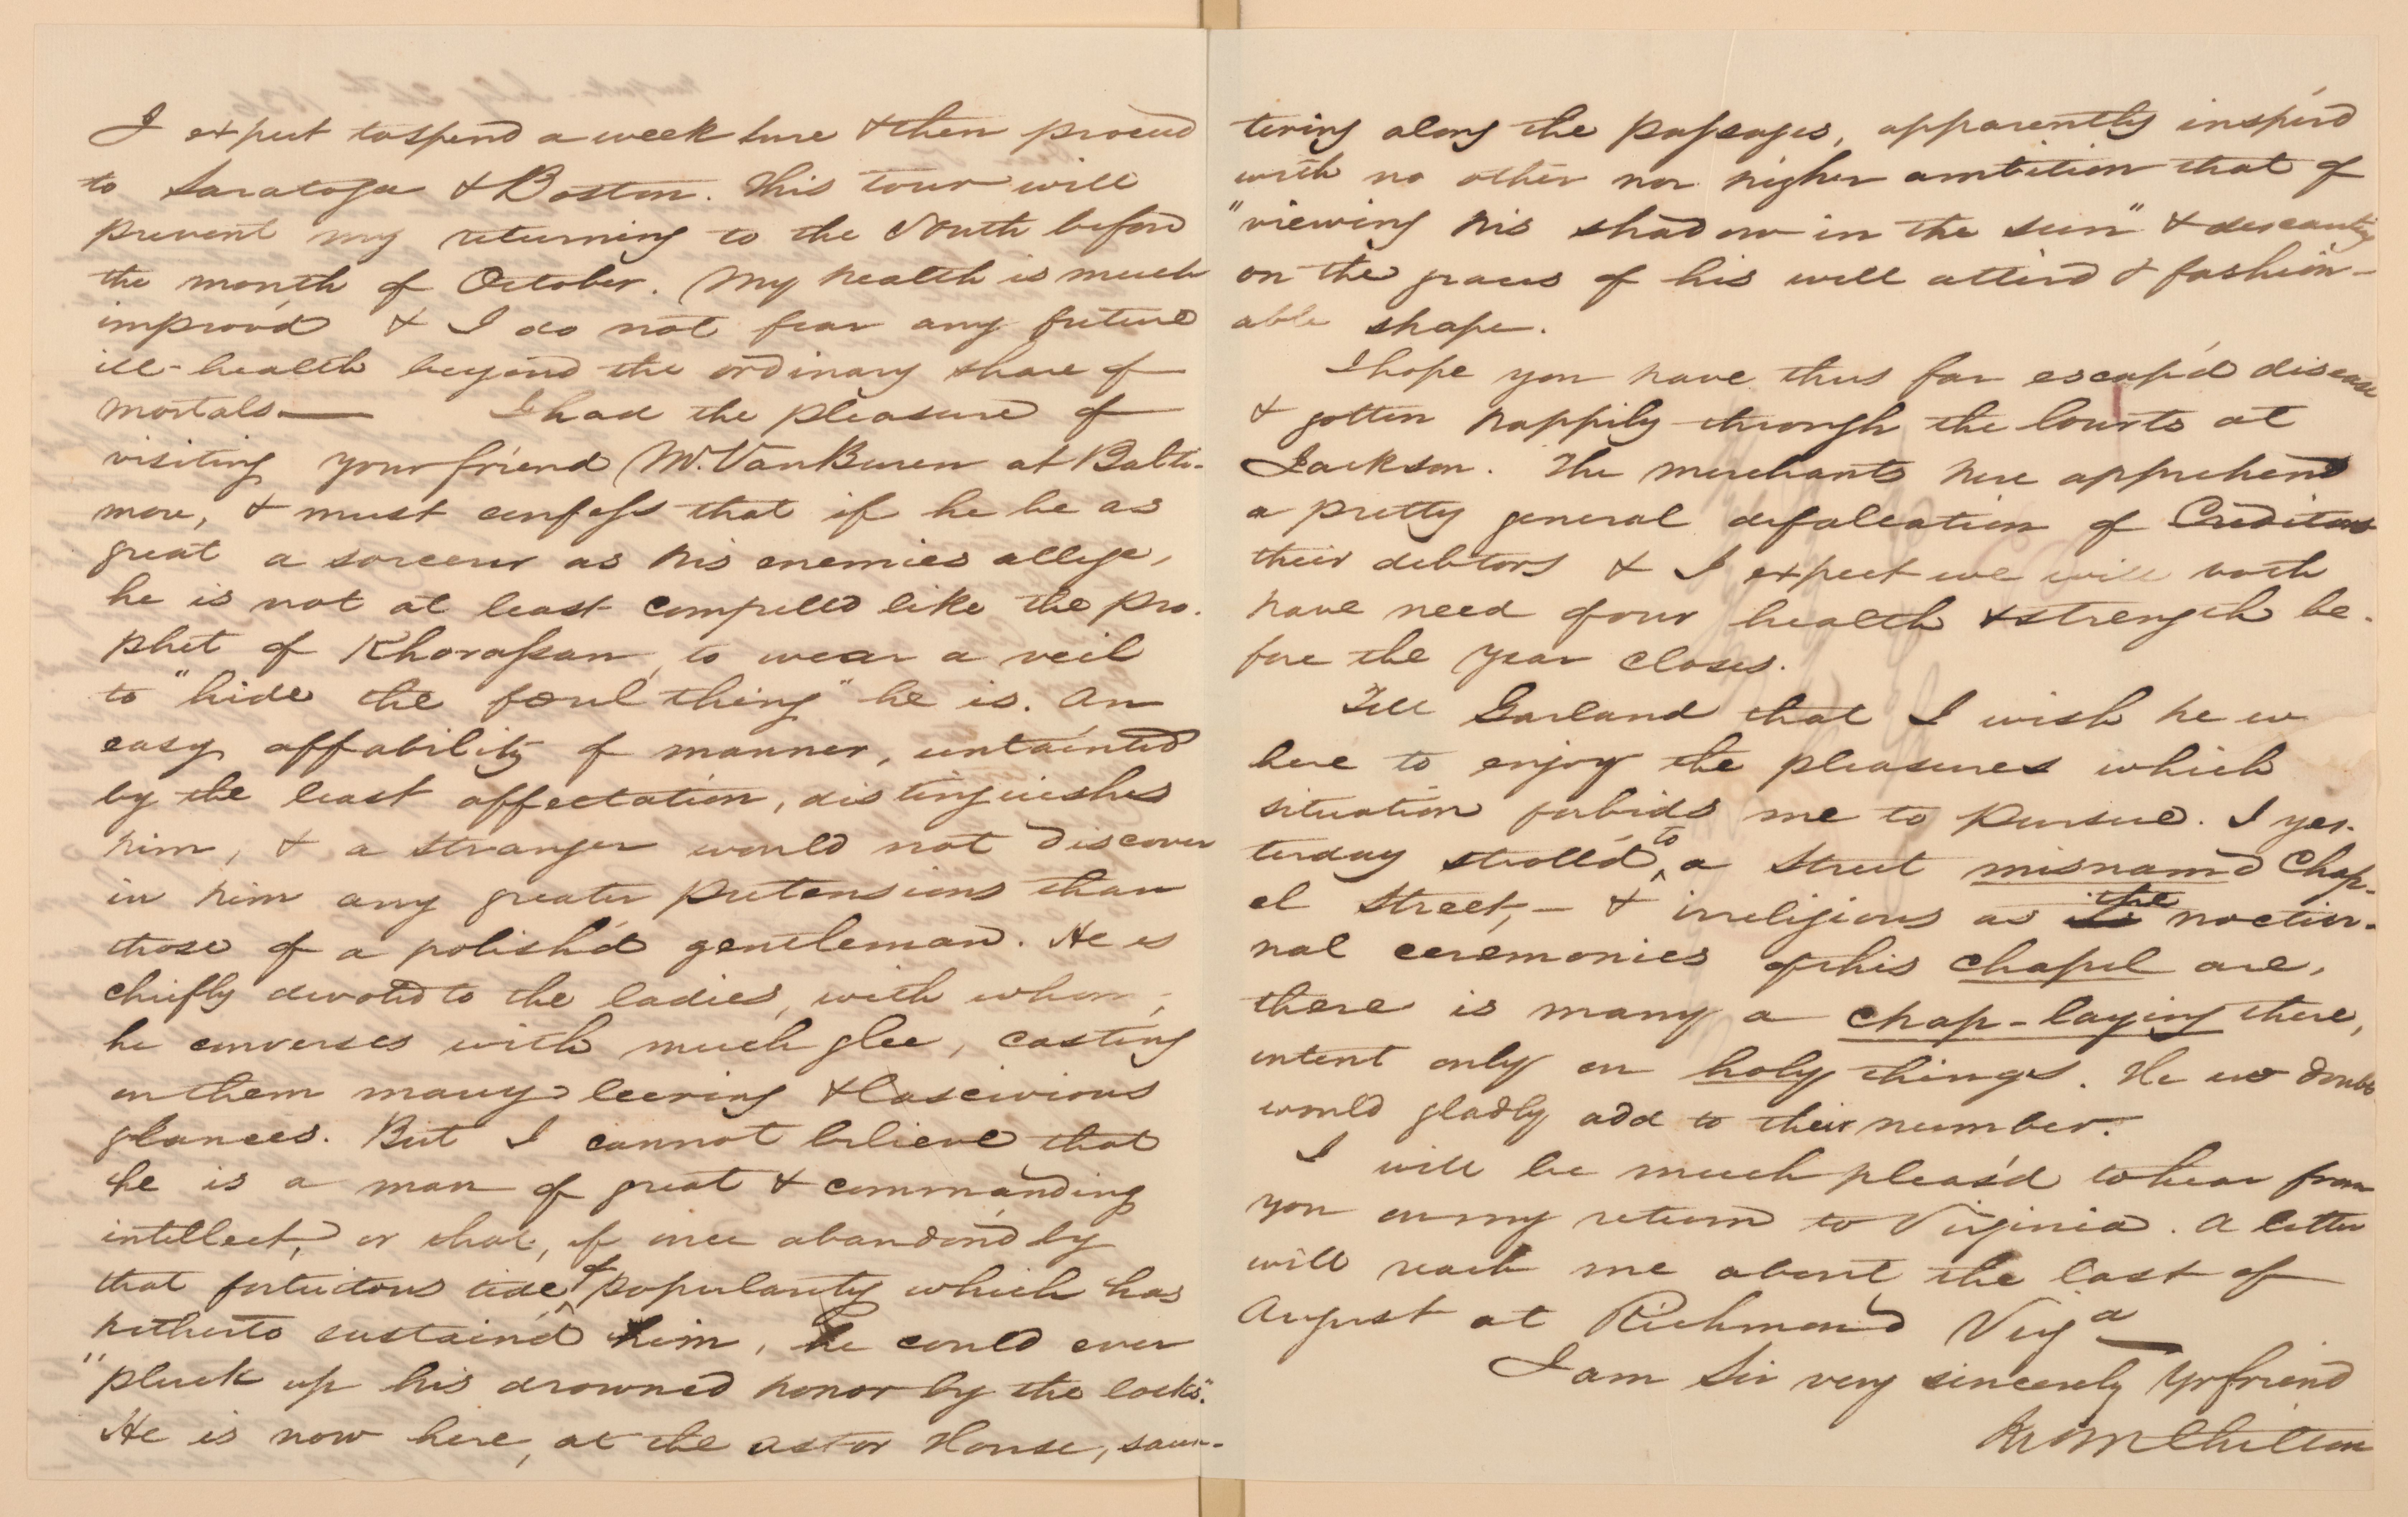 I expect to spend a week here & then proceed
to Saratoga & Boston. This tour will
prevent my returning to the South before
the month of October. My health is much
improv'd & I do not fear any future
ill-health beyond the ordinary share of
mortals— I had the pleasure of
visiting your friend Mr. Van Buren at Balti-
more, & must confess that if he be as
great a sorcerer as his enemies allege,
he is not at least compelld like the pro-
phet of Khorassan, to wear a veil
to "hide the foul thing" he is. An
easy affability of manner, untainted
by the least affectation, distinguishes
him, & a stranger would not discover
in him any greater pretensions than
those of a polish'd gentleman. He is
chiefly devoted to the ladies, with whom,
he converses with much glee, casting
on them many leering & lascivious
glances. But I cannot believe that
he is a man of great & commanding
intellect, or that, if once abandon'd by
that fortuitous tide of popularity which has
hitherto sustain'd him, he could ever
"pluck up his drowned honor by the locks".
He is now here, at the Astor House, saun-
tering along the passages, apparently inspir'd
with no other nor higher ambition that of
"viewing his shadow in the sun" & descanting
on the graces of his well attird & fashion-
able shape.
I hope you have thus far escap'd disease
& gotten happily through the Courts at
Jackson. The merchants here apprehend
a pretty general defalcation of Creditors
their debtors & I expect we will both
have need of our health & strength be-
fore the year closes.
Tell Garland that I wish he w
here to enjoy the pleasures which
situation forbids me to pursue. I yes-
terday stroll'd to a street misnamd Chap-
el Street,— & irreligious as the noctur-
nal ceremonies of this chapel are,
there is many a chap-laying there,
intent only on holy things. He no doubt
would gladly add to their number.
I will be much pleas'd to hear from
you on my return to Virginia. A letter
will reach me about the last of
August at Richmond Virga
I am Sir very sincerely Yr friend
Chilton